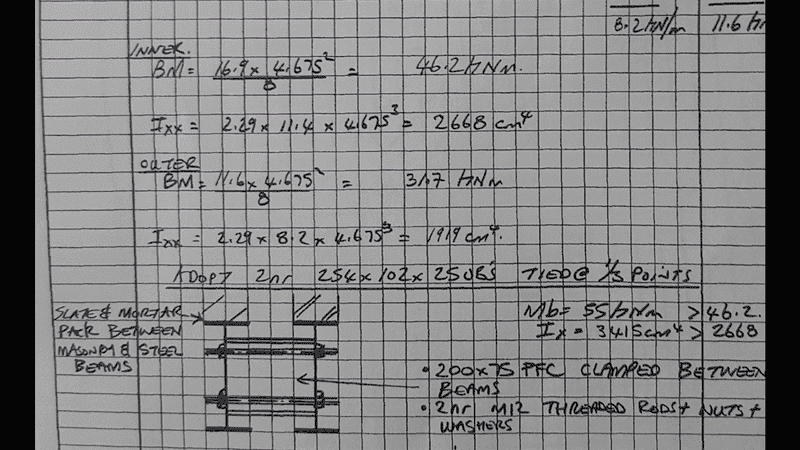 8.2 kN/m 11.6 kN/m
INNER.
BM = 16.9 x 4.675² / 8 = 46.2 kNm.
Ixx = 2.29 x 11.4 x 4.675³ = 2668 cm⁴
OUTER
BM = 11.6 x 4.675² / 8 = 31.7 kNm
Ixx = 2.29 x 8.2 x 4.675³ = 1919 cm⁴.
ADOPT 2nr 254x102x25UB'S TIED @ 1/3 POINTS
SLATE & MORTAR
PACK BETWEEN
MASONRY & STEEL
BEAMS
Mb = 55 kNm > 46.2.
Ix = 3415 cm⁴ > 2668
• 200x75 PFC CLAMPED BETWEEN
BEAMS
• 2nr M12 THREADED RODS + NUTS +
WASHERS